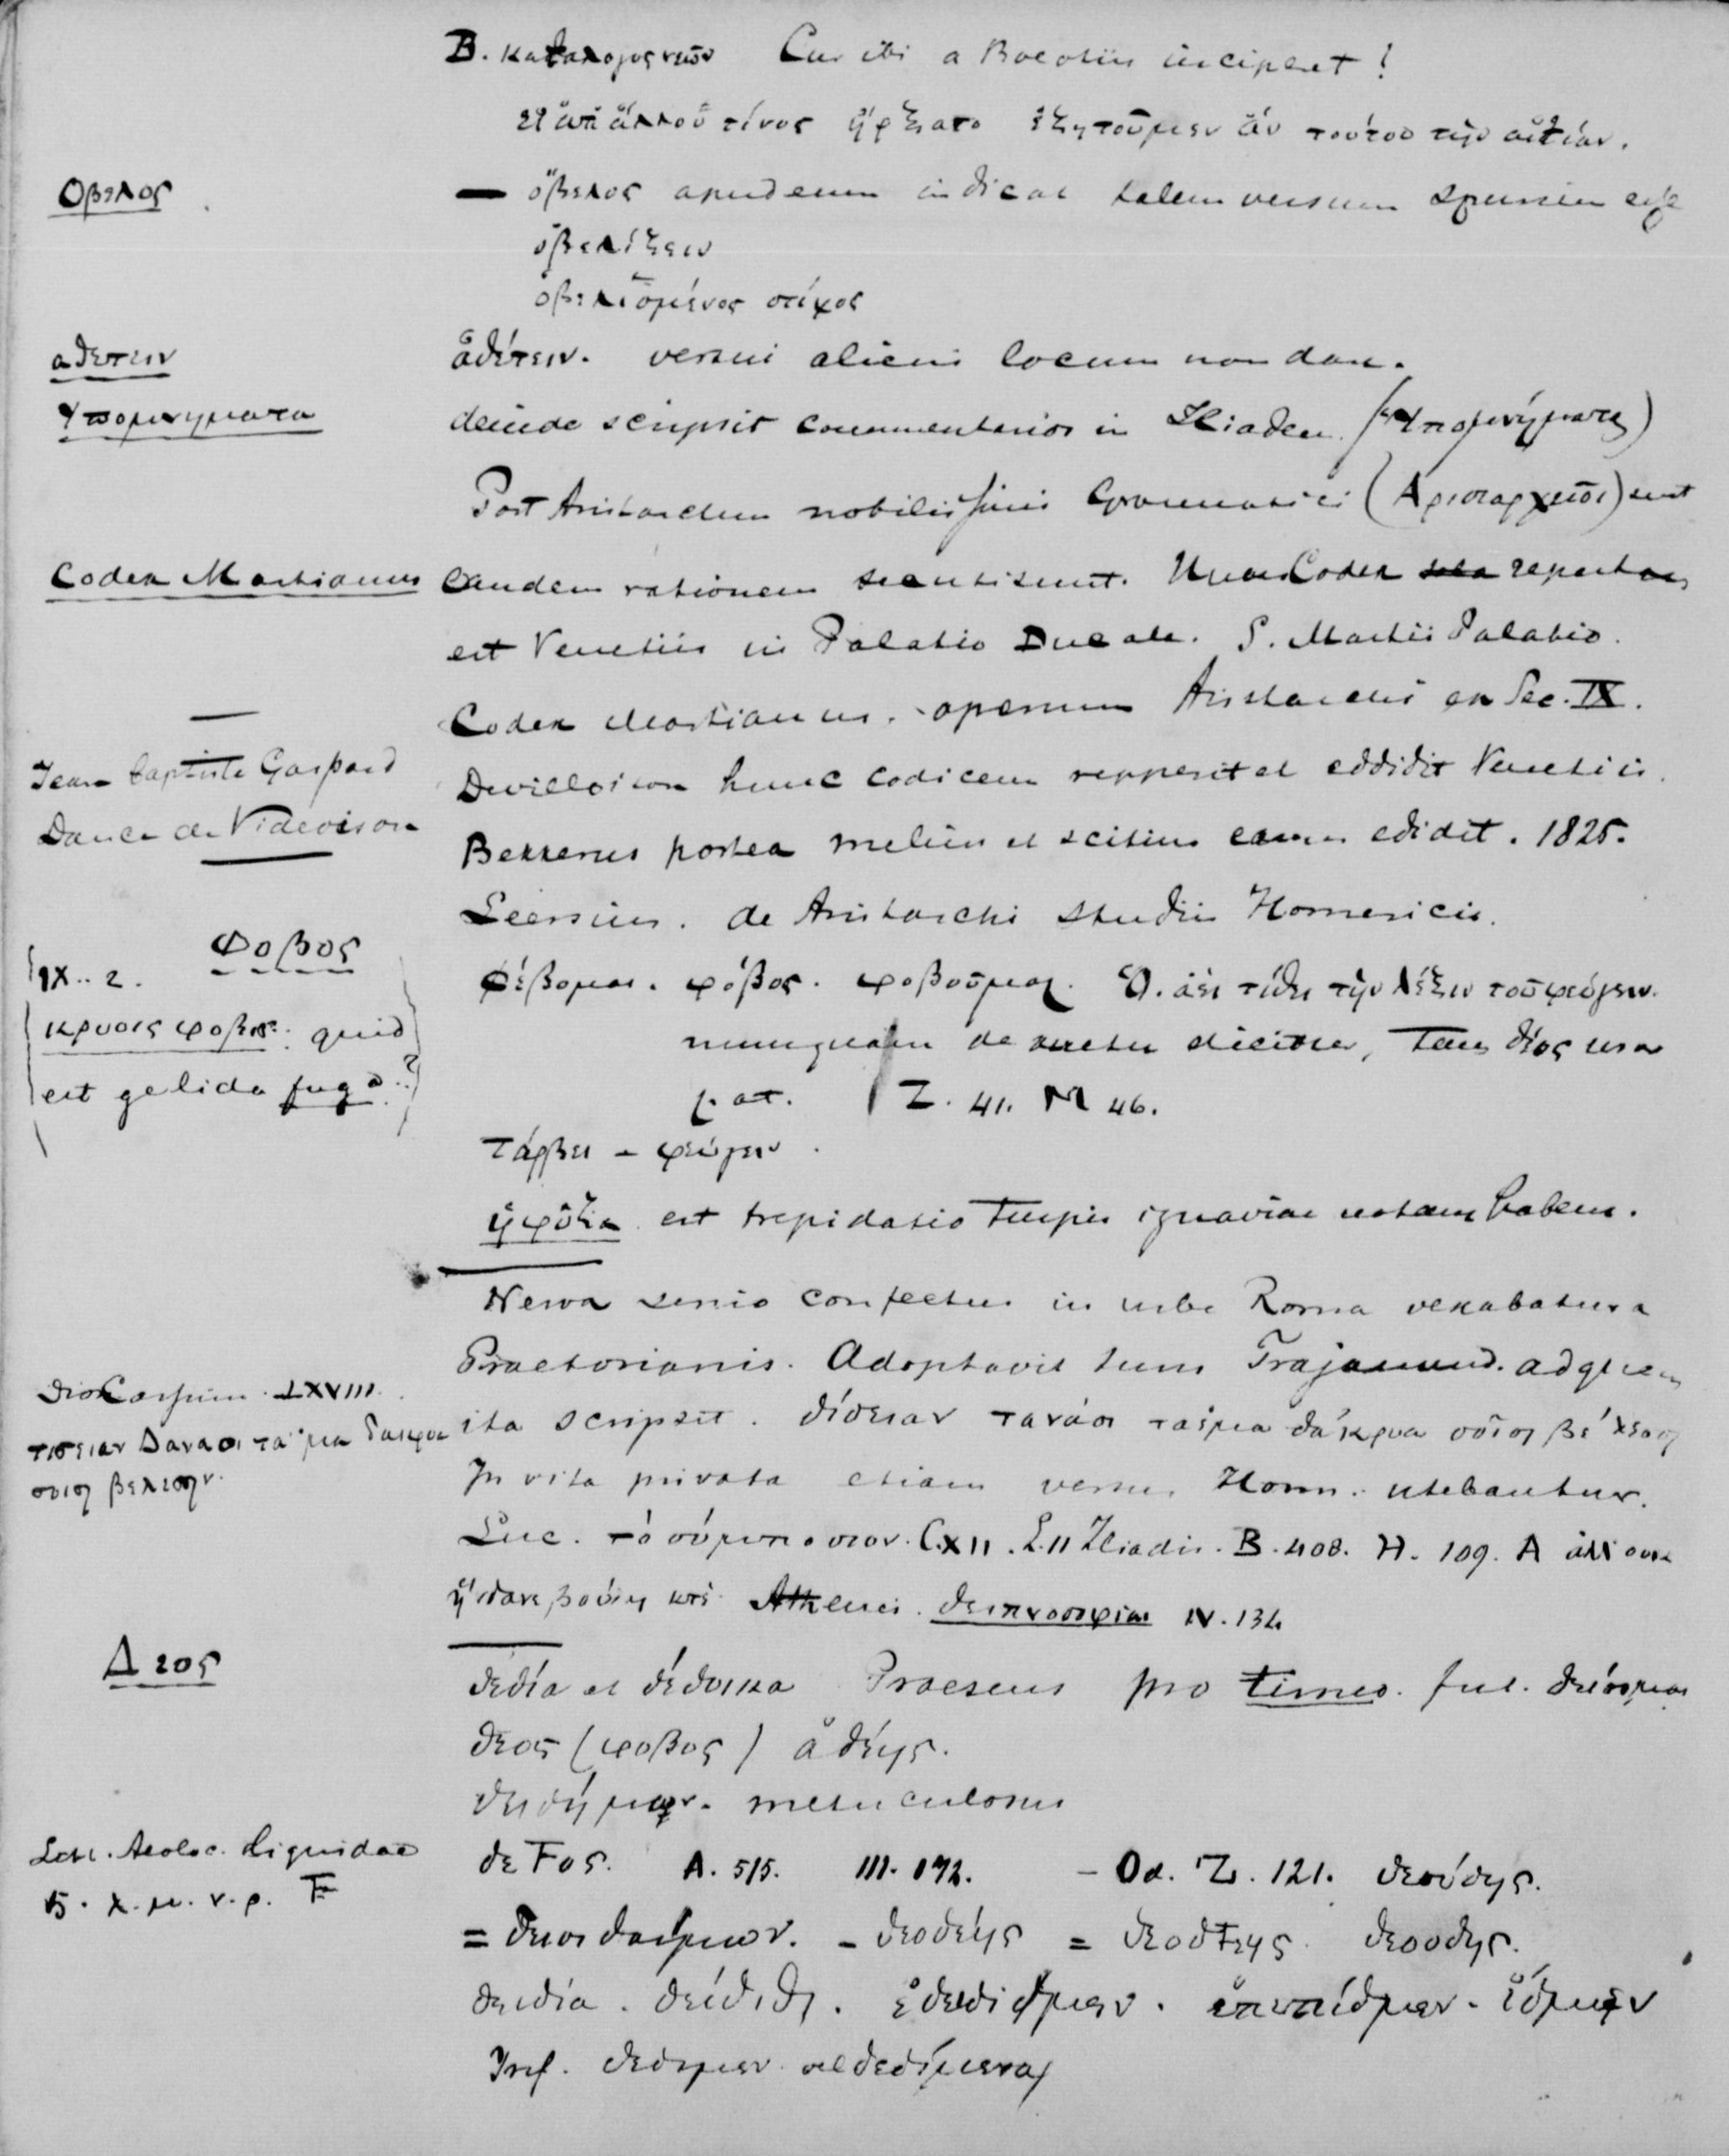 B. καταλογος νεῶν Cur ibi a Boeotiis inciperet!
εἰ ἀπ' ἄλλου τίνος ἤρξατο ἐζητοῦμεν ἄν τούτου τὴν αἰτίαν.
Οβελος
— ὄβελος apud eum indicat talem versum spurium esse
ὀβελίζειν
ὀβελισμένος στίχος
αθετειν
ἀθέτειν. versui alicui locum non dare.
Υπομνηματα
deinde scripsit commentarios in Iliadem. (Ὑπομνήματα)
Post Aristarchum nobilissimi Grammatici (Αρισταρχεῖοι) sunt
Codex Martianus
Eandem rationem secuti sunt. Unus Codex repertus
est Venetiis in Palatio Ducale. S. Martii Palatio.
Codex Martianus. operum Aristarchi ex Sec. IX.
Jean Baptiste Gaspard
Dance de Videvison
Devilloison hunc codicem repperit et eddidit Venetiis.
Bekkerus postea melius et scitius eum edidit. 1825.
Leersius. de Aristarchi studiis Homericis.
Φοβος
IX..2.
κρυοις φοβος: quid
est gelida fuga?
φέβομαι. φόβος. φοβοῦμαι. Ὁ. ἀεὶ τίθει τὴν λέξιν τοῦ φεύγειν.
nunquam de metu dicitur, Tum δέος usur
pat. Z. 41. M 46.
τάρβει - φεύγειν.
ἠφύζα est trepidatio turpis ignaviae notam habens.
Nerva senio confectus in urbe Roma vexabatur a
Praetorianis. Adoptavit tum Trajanum. ad quem
Dio Cassium LXVIII.
τισειαν Δαναοι τα μα δακρυα
σοισι βελεσσιν.
ita scripsit. τίσειαν τανάοι τα ἐμα δάκρυα σοῖσι βέλεσσι
In vita privata etiam versu Hom. utebantur.
Luc. τὸ σύμποσιον. C.XII. L. II Iliadis. B. 408. H. 109. A ἀλλ' ουκ
ἥνδανε βουλη κτἑ Athenei. δειπνοσοφισαι IV. 134
Δεος
δεδία et δέδοικα Praesens pro timeo. fut. δείσομαι
δεος (φοβος) ἀδεής.
δειδήμων. metuculosus
Lett. Aeolic. Liquidae
δ. λ. μ. ν. ρ. F
δεFος. A. 515. III. 172. - Od. Z. 121. θεούδης.
= δεισιδαίμων. - θεοδεής = θεοδFεης. θεουδης.
δειδία. δείδιθι. ἐδειδιμεν. ἐπεπίθμεν. ἴδμεν
Inf. δεδιμεν vel δεδίμεναι